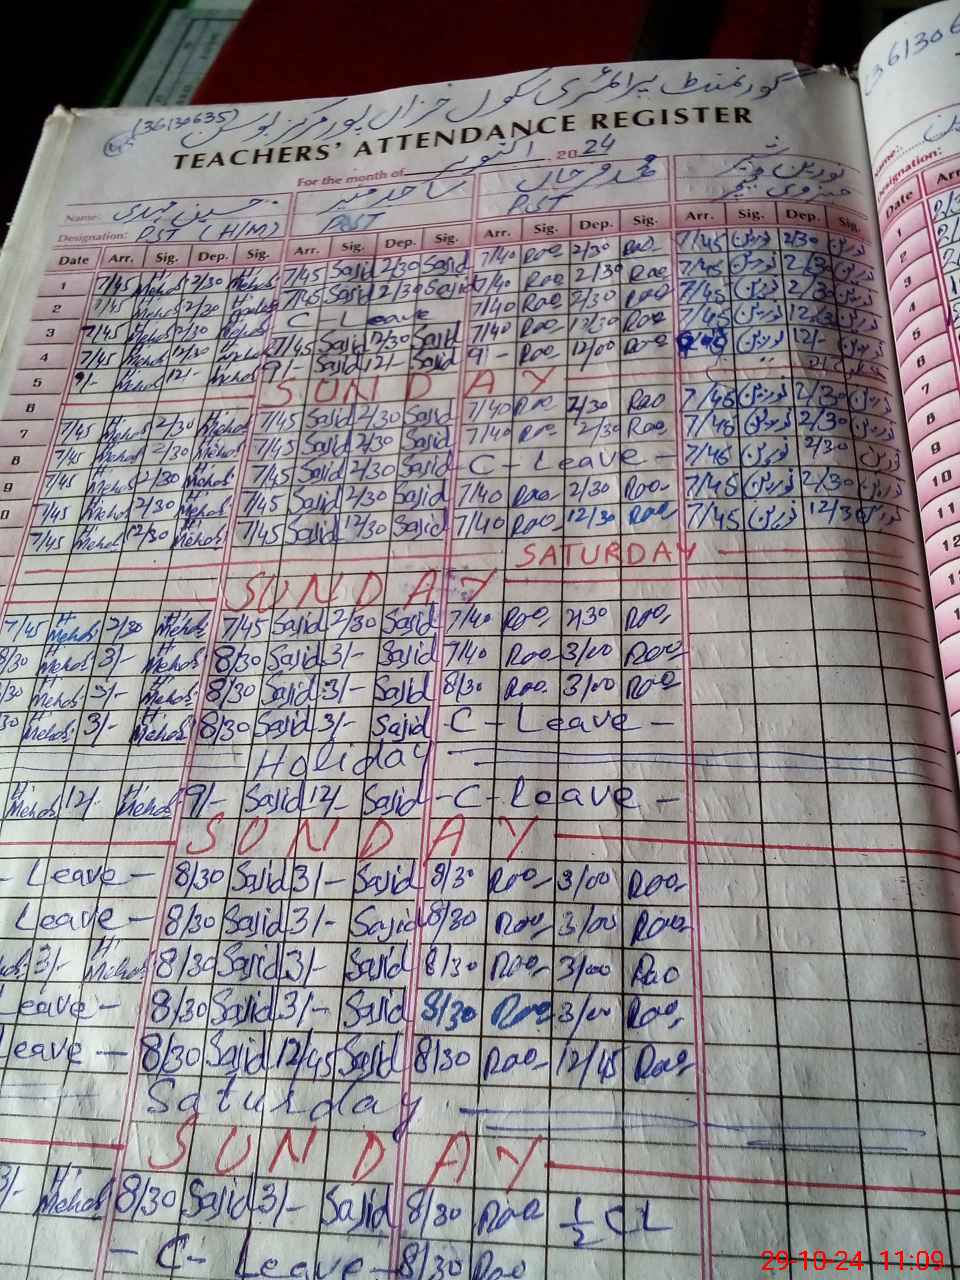 گورنمنٹ پرائمری سکول خزاں پور مرکز بوسن
(36130635)
TEACHERS' ATTENDANCE REGISTER
For the month of اکتوبر 2024
Name: حسین مہدی ساجد منیر محمد فرحان نورین
Designation: PST (H/M) PST PST
Date Arr. Sig. Dep. Sig. Arr. Sig. Dep. Sig. Arr. Sig. Dep. Sig. Arr. Sig. Dep. Sig.
1 7/45 Mehdi 2/30 Mehdi 7/45 Sajid 2/30 Sajid 7/40 Rao 2/30 Rao 7/45 نورین 2/30 نورین
2 7/45 Mehdi 2/30 7/45 Sajid 2/30 Sajid 7/40 Rao 2/30 Rao 7/45 نورین 2/30 نورین
3 7/45 Mehdi 2/30 Mehdi C Leave 7/40 Rao 2/30 Rao 7/45 نورین 2/30 نورین
4 7/45 Mehdi 12/30 Mehdi 7/45 Sajid 12/30 Sajid 7/40 Rao 12/30 Rao 7/45 نورین 12/30 نورین
5 9/- Mehdi 12/- Mehdi 9/- Sajid 12/- Sajid 9/- Rao 12/00 Rao نورین 12/-
6 SUNDAY
7 7/45 Mehdi 2/30 Mehdi 7/45 Sajid 2/30 Sajid 7/40 Rao 2/30 Rao 7/45 نورین 2/30 نورین
8 7/45 Mehdi 2/30 Mehdi 7/45 Sajid 2/30 Sajid 7/40 Rao 2/30 Rao 7/45 نورین 2/30 نورین
9 7/45 Mehdi 2/30 Mehdi 7/45 Sajid 2/30 Sajid - C - Leave - 7/45 نورین 2/30 نورین
0 7/45 Mehdi 2/30 Mehdi 7/45 Sajid 2/30 Sajid 7/40 Rao 2/30 Rao 7/45 نورین 2/30 نورین
7/45 Mehdi 12/30 Mehdi 7/45 Sajid 12/30 Sajid 7/40 Rao 12/30 Rao 7/45 نورین 12/30 نورین
SATURDAY
SUNDAY
7/45 Mehdi 2/30 Mehdi 7/45 Sajid 2/30 Sajid 7/40 Rao 2/30 Rao
8/30 Mehdi 3/- Mehdi 8/30 Sajid 3/- Sajid 7/40 Rao 3/00 Rao
/30 Mehdi 3/- Mehdi 8/30 Sajid 3/- Sajid 8/30 Rao 3/00 Rao
30 Mehdi 3/- Mehdi 8/30 Sajid 3/- Sajid - C - Leave -
Holiday
Mehdi 12/- Mehdi 9/- Sajid 12/- Sajid - C - Leave -
SUNDAY
- Leave - 8/30 Sajid 3/- Sajid 8/30 Rao 3/00 Rao
Leave - 8/30 Sajid 3/- Sajid 8/30 Rao 3/00 Rao
3/- Mehdi 8/30 Sajid 3/- Sajid 8/30 Rao 3/00 Rao
Leave - 8/30 Sajid 3/- Sajid 8/30 Rao 3/00 Rao
Leave - 8/30 Sajid 12/45 Sajid 8/30 Rao 12/45 Rao
Saturday
SUNDAY
3/- Mehdi 8/30 Sajid 3/- Sajid 8/30 Rao 1/2 CL
- C - Leave - 8/30 Rao
361306
Name:
Designation:
Date Arr
1
2
3
4
5
6
7
8
9
10
11
12
29-10-24 11:09